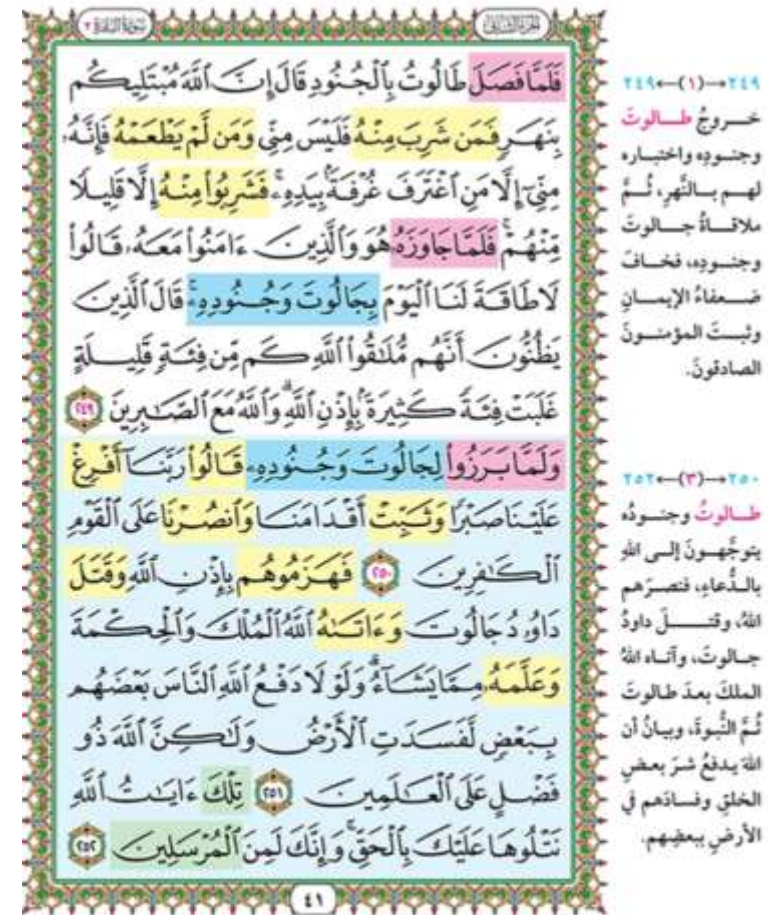 سُورَةُ البَقَرَةِ ٢
الجُزءُ الثَّانِي
فَلَمَّا فَصَلَ طَالُوتُ بِٱلْجُنُودِ قَالَ إِنَّ ٱللَّهَ مُبْتَلِيكُم
بِنَهَرٍ فَمَن شَرِبَ مِنْهُ فَلَيْسَ مِنِّي وَمَن لَّمْ يَطْعَمْهُ فَإِنَّهُۥ
مِنِّيٓ إِلَّا مَنِ ٱغْتَرَفَ غُرْفَةَۢ بِيَدِهِۦۚ فَشَرِبُواْ مِنْهُ إِلَّا قَلِيلًا
مِّنْهُمْۚ فَلَمَّا جَاوَزَهُۥ هُوَ وَٱلَّذِينَ ءَامَنُواْ مَعَهُۥ قَالُواْ
لَا طَاقَةَ لَنَا ٱلْيَوْمَ بِجَالُوتَ وَجُنُودِهِۦۚ قَالَ ٱلَّذِينَ
يَظُنُّونَ أَنَّهُم مُّلَٰقُواْ ٱللَّهِ كَم مِّن فِئَةٍ قَلِيلَةٍ
غَلَبَتْ فِئَةً كَثِيرَةَۢ بِإِذْنِ ٱللَّهِۗ وَٱللَّهُ مَعَ ٱلصَّٰبِرِينَ ٢٤٩
وَلَمَّا بَرَزُواْ لِجَالُوتَ وَجُنُودِهِۦ قَالُواْ رَبَّنَآ أَفْرِغْ
عَلَيْنَا صَبْرًا وَثَبِّتْ أَقْدَامَنَا وَٱنصُرْنَا عَلَى ٱلْقَوْمِ
ٱلْكَٰفِرِينَ ٢٥٠ فَهَزَمُوهُم بِإِذْنِ ٱللَّهِ وَقَتَلَ
دَاوُۥدُ جَالُوتَ وَءَاتَىٰهُ ٱللَّهُ ٱلْمُلْكَ وَٱلْحِكْمَةَ
وَعَلَّمَهُۥ مِمَّا يَشَآءُۗ وَلَوْلَا دَفْعُ ٱللَّهِ ٱلنَّاسَ بَعْضَهُم
بِبَعْضٍ لَّفَسَدَتِ ٱلْأَرْضُ وَلَٰكِنَّ ٱللَّهَ ذُو
فَضْلٍ عَلَى ٱلْعَٰلَمِينَ ٢٥١ تِلْكَ ءَايَٰتُ ٱللَّهِ
نَتْلُوهَا عَلَيْكَ بِٱلْحَقِّۚ وَإِنَّكَ لَمِنَ ٱلْمُرْسَلِينَ ٢٥٢
٤١
٢٤٩←(١)→٢٤٩
خروجُ طالوتَ
وجنودِه واختباره
لهم بالنَّهرِ، ثُمَّ
ملاقاةُ جالوتَ
وجنودِه، فخافَ
ضعفاءُ الإيمانِ
وثبتَ المؤمنونَ
الصادقونَ.
٢٥٠←(٣)→٢٥٢
طالوتُ وجنودُه
يتوجَّهونَ إلى اللهِ
بالدُّعاءِ، فنصرَهم
اللهُ، وقتلَ داودُ
جالوتَ، وآتاه اللهُ
الملكَ بعدَ طالوتَ
ثُمَّ النُّبوةَ، وبيانُ أن
اللهَ يدفعُ شرّ بعضِ
الخلقِ وفسادَهم في
الأرضِ ببعضِهم.